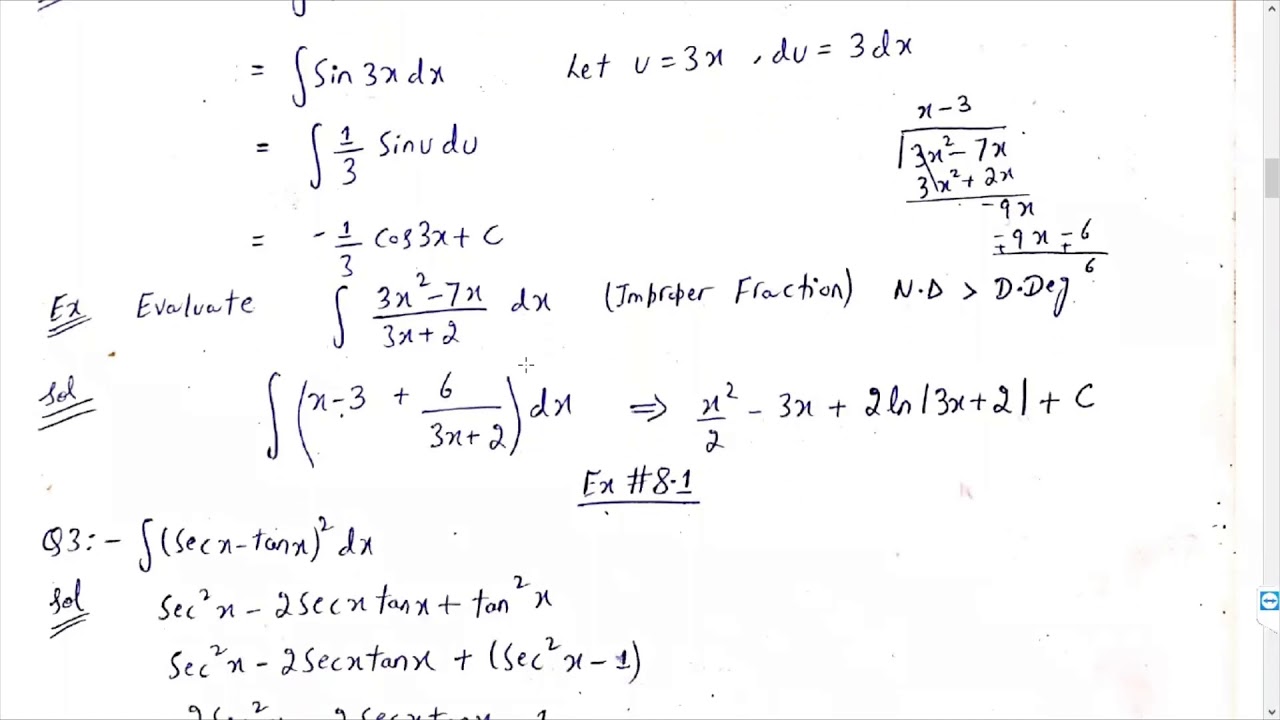 = ∫ Sin 3x dx Let u = 3x , du = 3dx
= ∫ 1/3 Sinu du
= - 1/3 Cos3x + C
x - 3
3x² - 7x
3x² + 2x
-9x
-9x - 6
6
Ex Evaluate ∫ (3x² - 7x)/(3x + 2) dx (Improper Fraction) N.D > D.Deg
Sol ∫ (x - 3 + 6/(3x + 2)) dx ⇒ x²/2 - 3x + 2ln|3x+2| + C
Ex #8.1
Q3:- ∫(Secx - tanx)² dx
Sol Sec²x - 2Secx tanx + tan²x
Sec²x - 2Secxtanx + (Sec²x - 1)